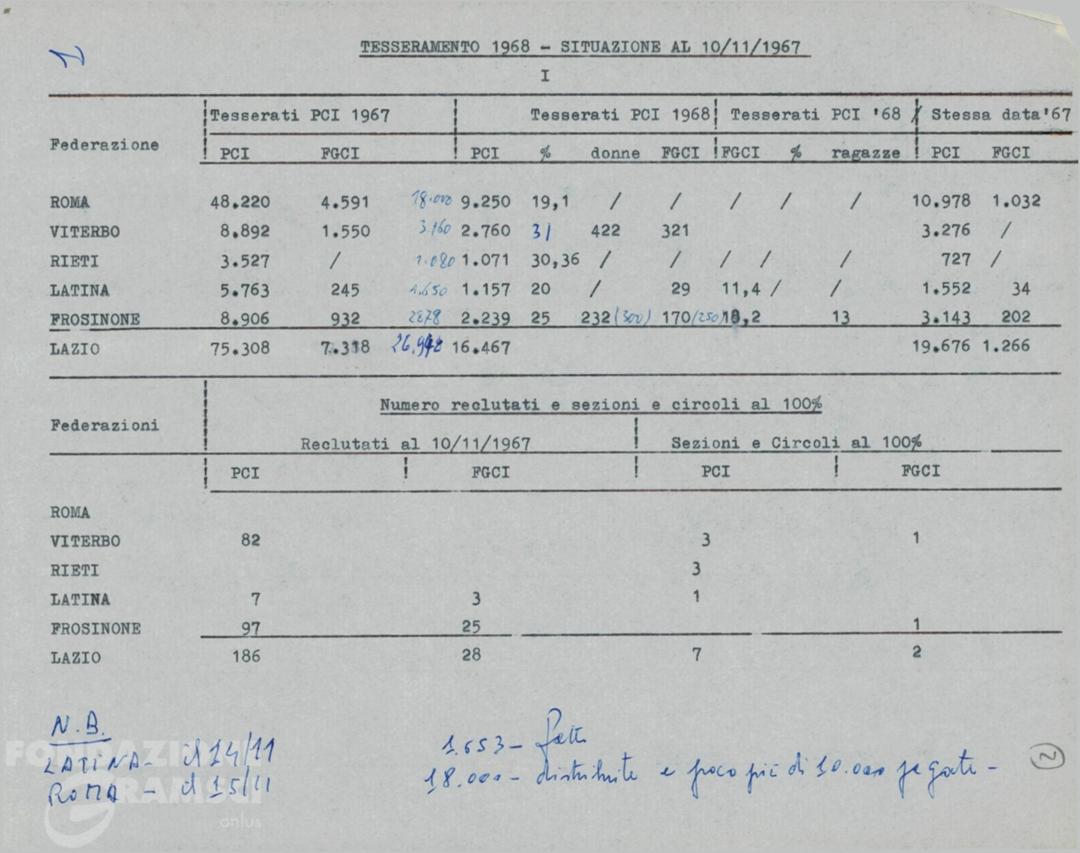 1
TESSERAMENTO 1968 - SITUAZIONE AL 10/11/1967
I
Tesserati PCI 1967 Tesserati PCI 1968 Tesserati PCI '68 / Stessa data'67
Federazione PCI FGCI PCI % donne FGCI FGCI % ragazze PCI FGCI
ROMA 48.220 4.591 18.000 9.250 19,1 / / / / / 10.978 1.032
VITERBO 8.892 1.550 3.160 2.760 31 422 321 3.276 /
RIETI 3.527 / 1.080 1.071 30,36 / / / / / 727 /
LATINA 5.763 245 1.650 1.157 20 / 29 11,4 / / 1.552 34
FROSINONE 8.906 932 2878 2.239 25 232 (300) 170 (250) 18,2 13 3.143 202
LAZIO 75.308 7.318 16.467 19.676 1.266
Numero reclutati e sezioni e circoli al 100%
Federazioni
Reclutati al 10/11/1967 Sezioni e Circoli al 100%
PCI FGCI PCI FGCI
ROMA
VITERBO 82 3 1
RIETI 3
LATINA 7 3 1
FROSINONE 97 25 1
LAZIO 186 28 7 2
N.B.
LATINA - il 14/11
ROMA - il 15/11
1.653 - fatte
18.000 - distribuite e poco più di 10.000 pagate -
2
FONDAZIONE
GRAMSCI
onlus